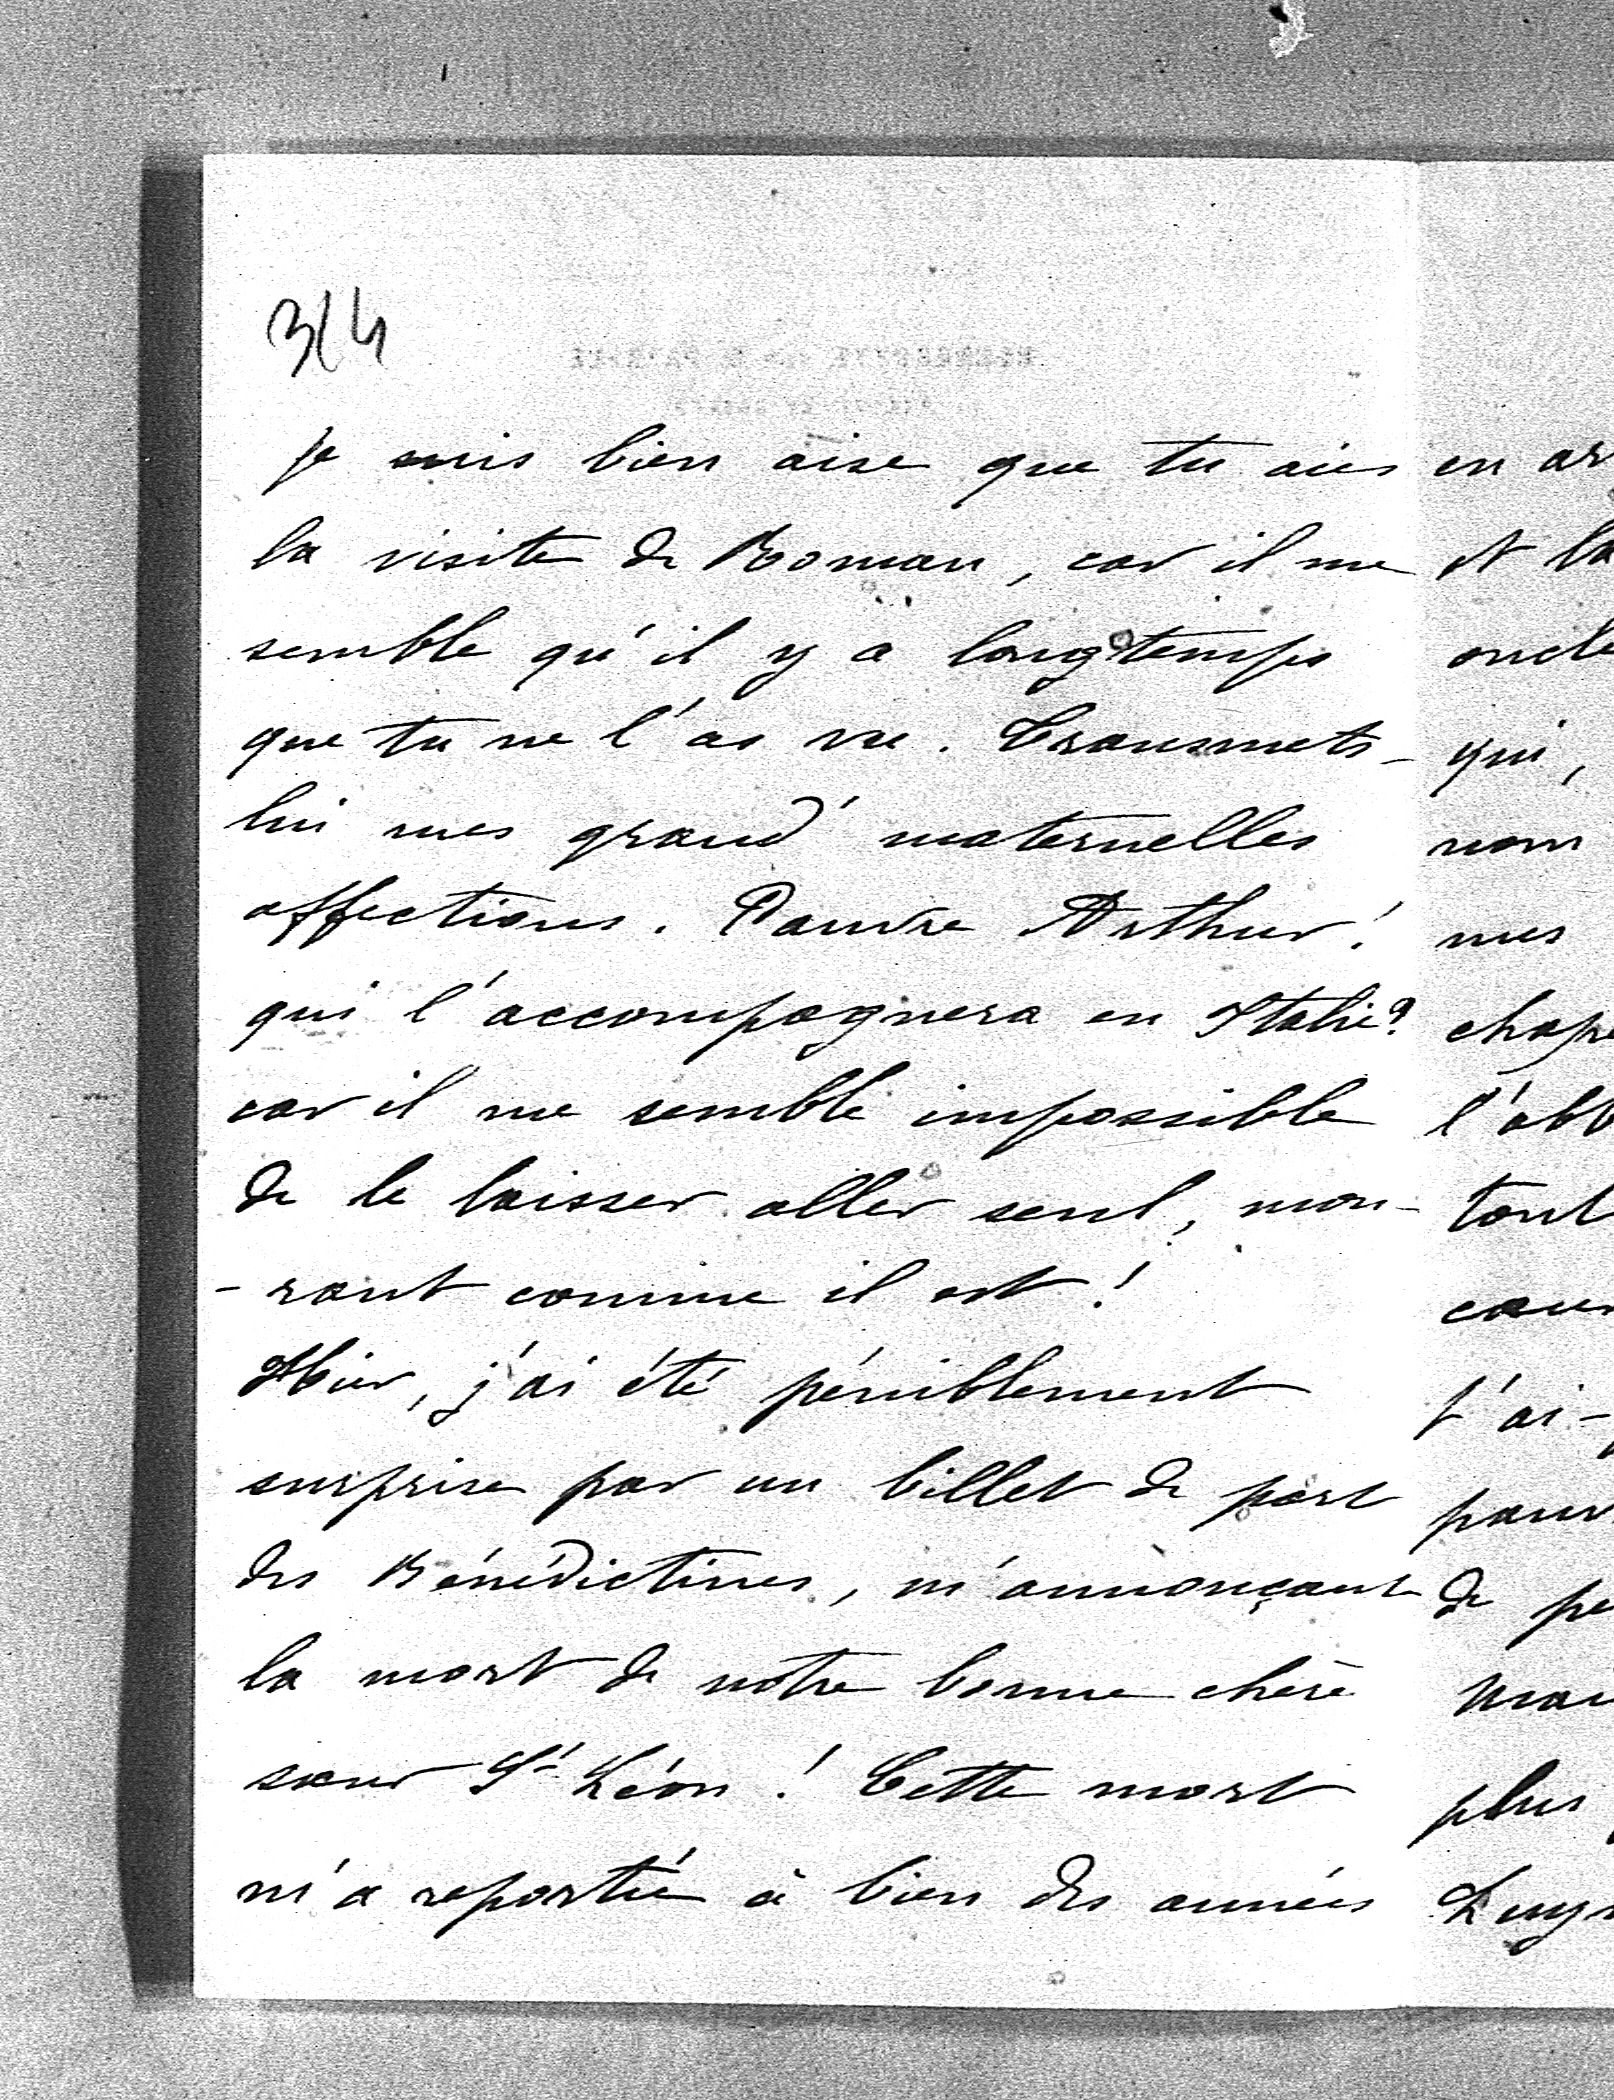 3/4
je suis bien aise que tu aies
la visite de Roman, car il me
semble qu'il y a longtemps
que tu ne l'as vu. Transmets-
lui mes grand' maternelles
affections. Pauvre Arthur!
qui l'accompagnera en Italie?
car il me semble impossible
de le laisser aller seul, mou-
-rant comme il est!
Hier, j'ai été péniblement
surprise par un billet de part
des Bénédictines, m'annonçant
la mort de notre bonne chère
sœur St Léon! Cette mort
m'a reportée à bien des années
en
et la
oncle
qui,
nom
mes
l'abb
tout
t'ai-
de
plus